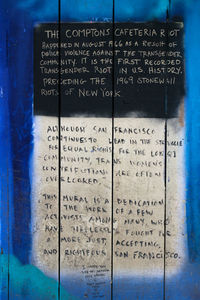 THE COMPTONS CAFETERIA RIOT
HAPPENED IN AUGUST 1966 AS A RESULT OF
POLICE VIOLENCE AGAINST THE TRANSGENDER
COMMUNITY. IT IS THE FIRST RECORDED
TRANSGENDER RIOT IN U.S. HISTORY,
PRECEDING THE 1969 STONEWALL
RIOTS OF NEW YORK
ALTHOUGH SAN FRANCISCO
CONTINUES TO LEAD IN THE STRUGGLE
FOR EQUAL RIGHTS FOR THE LGBTQI
COMMUNITY, TRANS WOMENS
CONTRIBUTIONS ARE OFTEN
OVERLOOKED.
THIS MURAL IS A DEDICATION
TO THE WORK OF A FEW
ACTIVISTS AMONG MANY, WHO
HAVE FOUGHT FOR
A MORE JUST, ACCEPTING,
AND RIGHTEOUS SAN FRANCISCO.